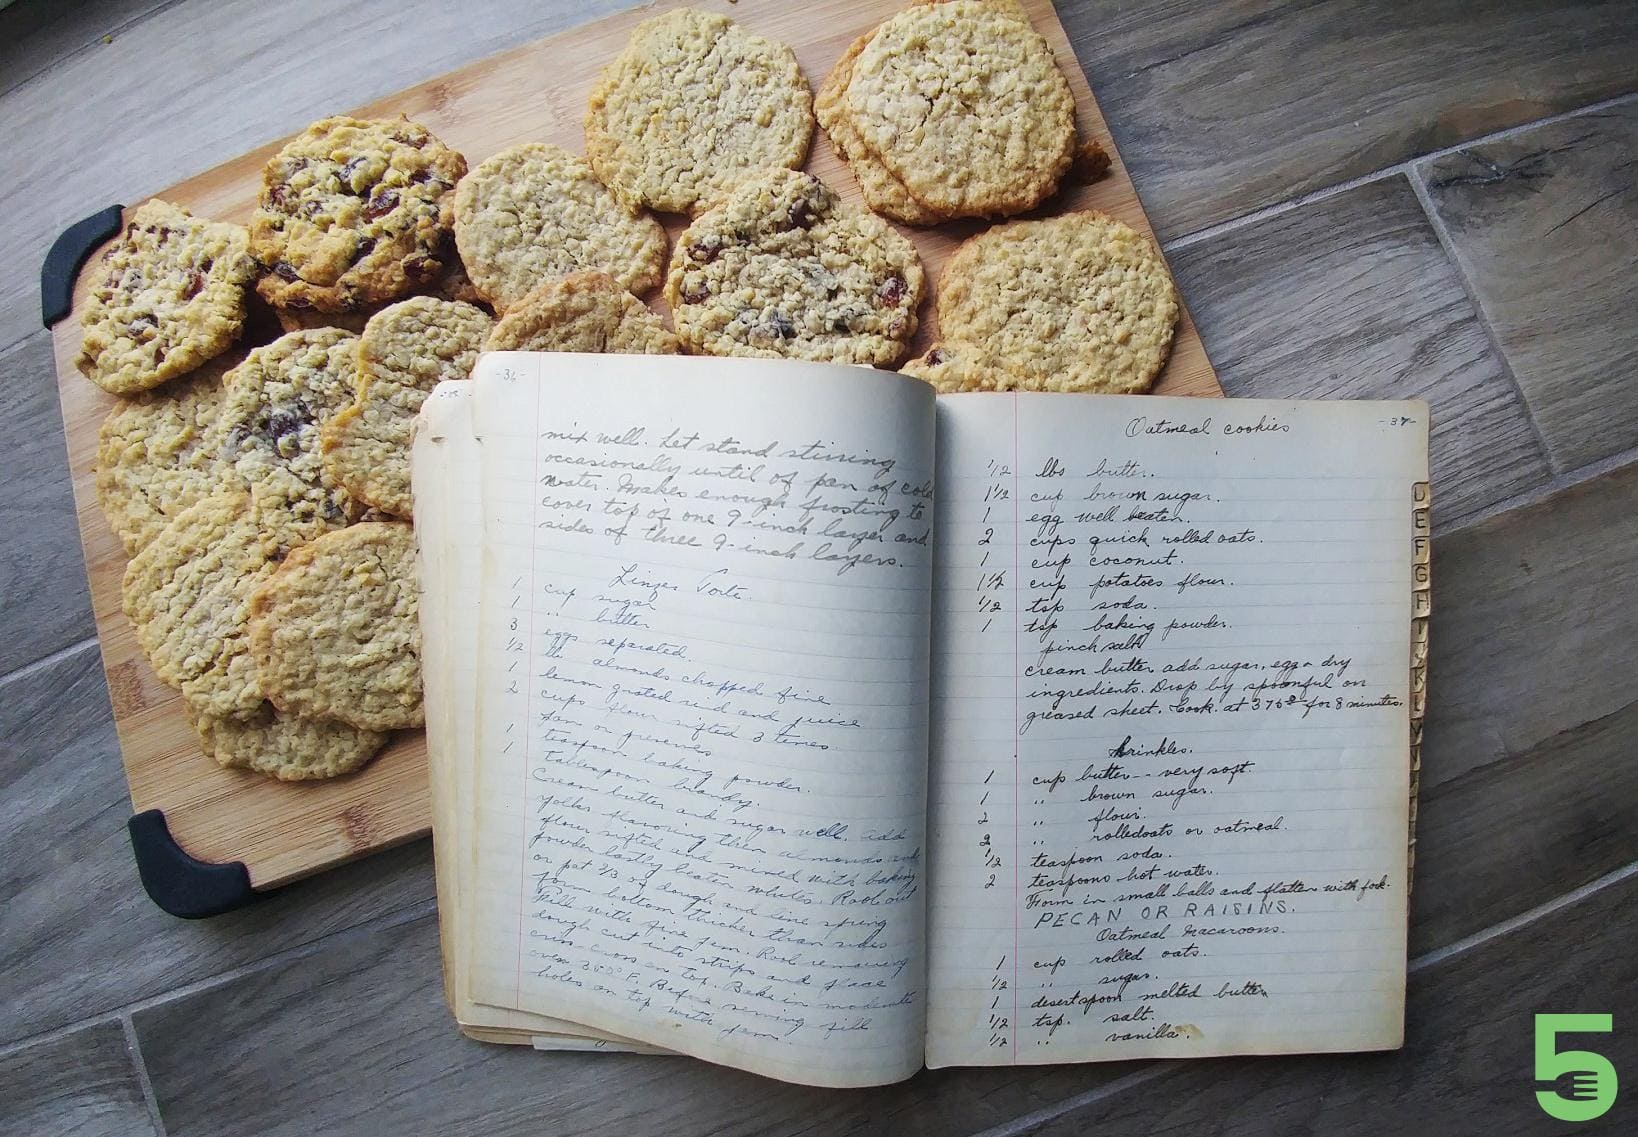 -36-
mix well. Let stand stirring
occasionally until of pan of cold
water. Makes enough frosting to
cover top of one 9-inch layer and
sides of three 9-inch layers.
Linzes Torte.
1 cup sugar
1 " butter
3 eggs separated.
1/2 lb almonds chopped fine
1 lemon grated rind and juice
2 cups flour sifted 3 times.
Jam or preserves
1 teaspoon baking powder.
1 tablespoon brandy.
Cream butter and sugar well. add
yolks flavoring then almonds and
flour sifted and mixed with baking
powder lastly beaten whites. Roll out
or pat 2/3 of dough and line spring
form bottom thicker than sides
Fill with fine jam. Roll remaining
dough cut into strips and place
criss-cross on top. Bake in moderate
oven 350° F. Before serving fill
holes on top with jam.
Oatmeal cookies
-37-
1/2 lbs butter.
1 1/2 cup brown sugar.
1 egg well beaten.
2 cups quick rolled oats.
1 cup coconut.
1 1/2 cup potatoes flour.
1/2 tsp soda.
1 tsp baking powder.
pinch salt
cream butter add sugar, egg & dry
ingredients. Drop by spoonful on
greased sheet. Cook at 375° for 8 minutes.
krinkles.
1 cup butter-- very soft.
1 " brown sugar.
2 " flour.
2 " rolledoats or oatmeal.
1/2 teaspoon soda.
2 teaspoons hot water.
Form in small balls and flatten with fork.
PECAN OR RAISINS.
Oatmeal Macaroons.
1 cup rolled oats.
1/2 " sugar.
1 desertspoon melted butter
1/2 tsp. salt.
1/2 " vanilla.
E
F
G
H
I
K
L
5